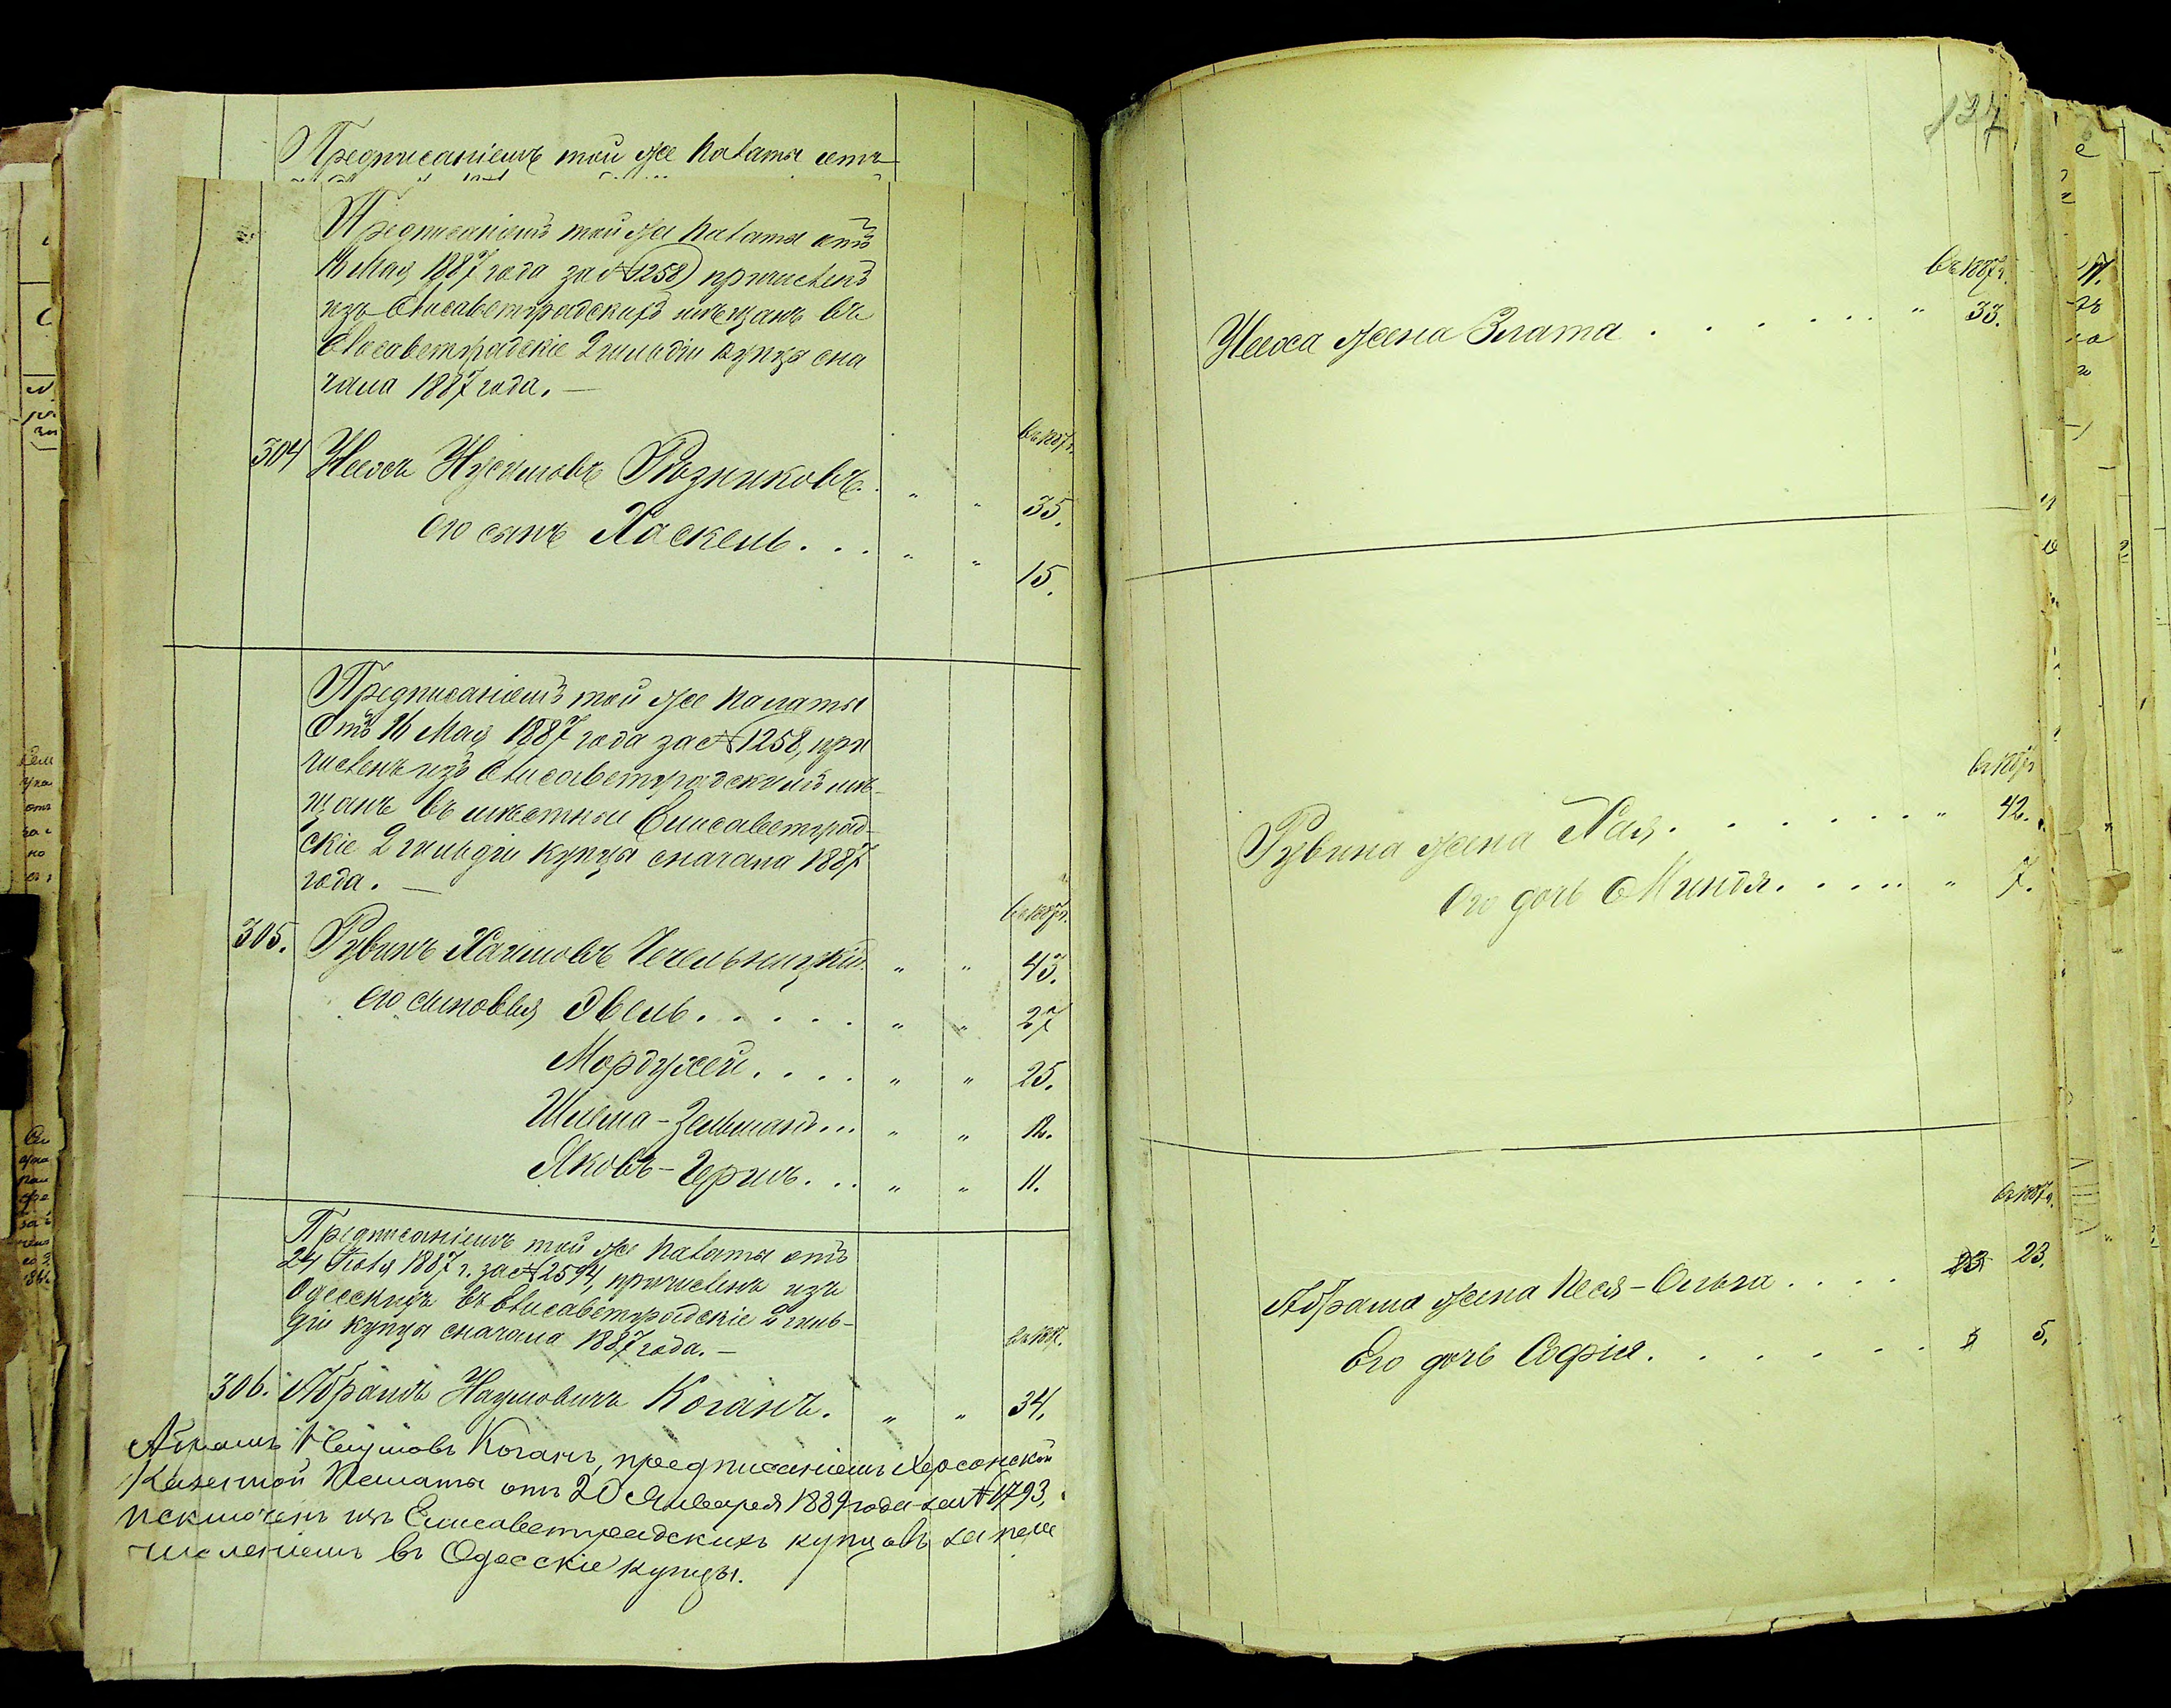 Предписаніемъ той же палаты отъ
Предписаніемъ той же палаты отъ
16 Мая 1887 года за № 1258 причисленъ
изъ Елисаветградскихъ мѣщанъ въ
Елисаветградскіе 2 гильдіи купцы сна
чала 1887 года. —
въ 1887 г.
304 Иосъ Нусимовъ Рѣзниковъ. . " " 35.
его сынъ Хаскель . . . " " 15.
Предписаніемъ той же палаты
Отъ 16 Мая 1887 года за № 1258, при
численъ изъ Елисаветградскихъ мѣ-
щанъ въ мѣстные Елисаветград-
скіе 2 гильдіи купцы сначала 1887
года. —
въ 1887 г.
305. Рувинъ Хаимовъ Чечельницкій. " " 43.
его сыновья Эвель . . . . . " " 27
Мордухей . . . . " " 25.
Шлема-Зельманъ . . . " " 12.
Яковъ-Гершъ . . . " " 11.
Предписаніемъ той же палаты отъ
24 Іюля 1887 г. за № 2594, причисленъ изъ
Одесскихъ въ Елисаветградскіе 2 гиль-
діи купцы сначала 1887 года. —
въ 1887.
306. Абрамъ Наумовичъ Коганъ. " " 34.
Абрамъ Наумовъ Коганъ, предписаніемъ Херсонской
Казенной Палаты отъ 20 Января 1889 года за № 1793,
исключенъ изъ Елисаветградскихъ купцовъ за пере
численіемъ въ Одесскіе купцы.
137
въ 1887 г.
Иоса жена Злата . . . . . . " 33.
въ 1887 г.
Рувина жена Хая . . . . . . . " 42.
Его дочь Миндя . . . . . " 7.
въ 1887 г.
Абрама жена Песя-Ольга . . . . 23 23.
Его дочь Софія . . . . . . . 5 5.